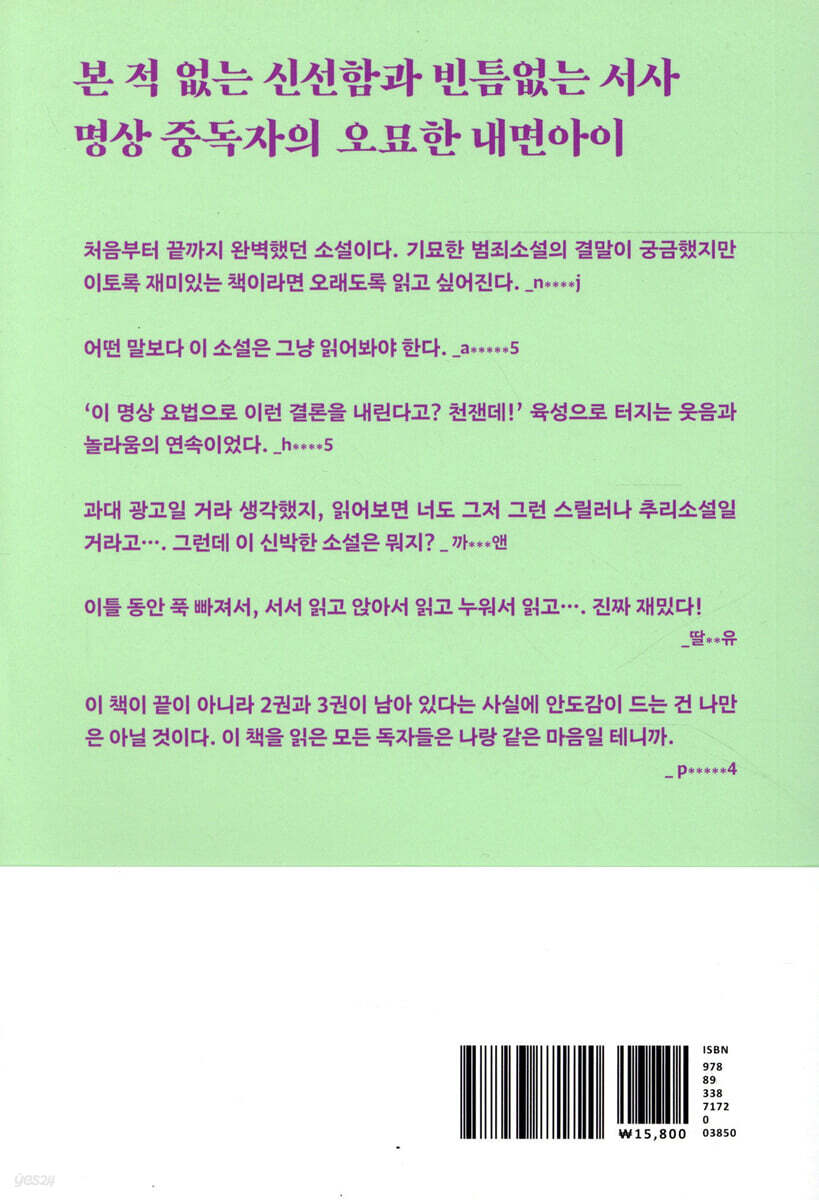 본 적 없는 신선함과 빈틈없는 서사
명상 중독자의 오묘한 내면아이
처음부터 끝까지 완벽했던 소설이다. 기묘한 범죄소설의 결말이 궁금했지만
이토록 재미있는 책이라면 오래도록 읽고 싶어진다. _n****j
어떤 말보다 이 소설은 그냥 읽어봐야 한다. _a*****5
‘이 명상 요법으로 이런 결론을 내린다고? 천잰데!’ 육성으로 터지는 웃음과
놀라움의 연속이었다. _h****5
과대 광고일 거라 생각했지, 읽어보면 너도 그저 그런 스릴러나 추리소설일
거라고…. 그런데 이 신박한 소설은 뭐지? _ 까***앤
이틀 동안 푹 빠져서, 서서 읽고 앉아서 읽고 누워서 읽고…. 진짜 재밌다!
_딸**유
이 책이 끝이 아니라 2권과 3권이 남아 있다는 사실에 안도감이 드는 건 나만
은 아닐 것이다. 이 책을 읽은 모든 독자들은 나랑 같은 마음일 테니까.
_ p*****4
ISBN
978
89
338
7172
0
03850
₩15,800
yes24